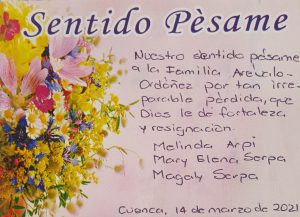 Sentido Pèsame
Nuestro sentido pésame
a la Familia Arévalo-
Ordóñez por tan irre-
parable pérdida, que
Dios le de fortaleza
y resignación.
Melinda Arpi
Mary Elena Serpa
Magaly Serpa
Cuenca, 14 de marzo de 2021